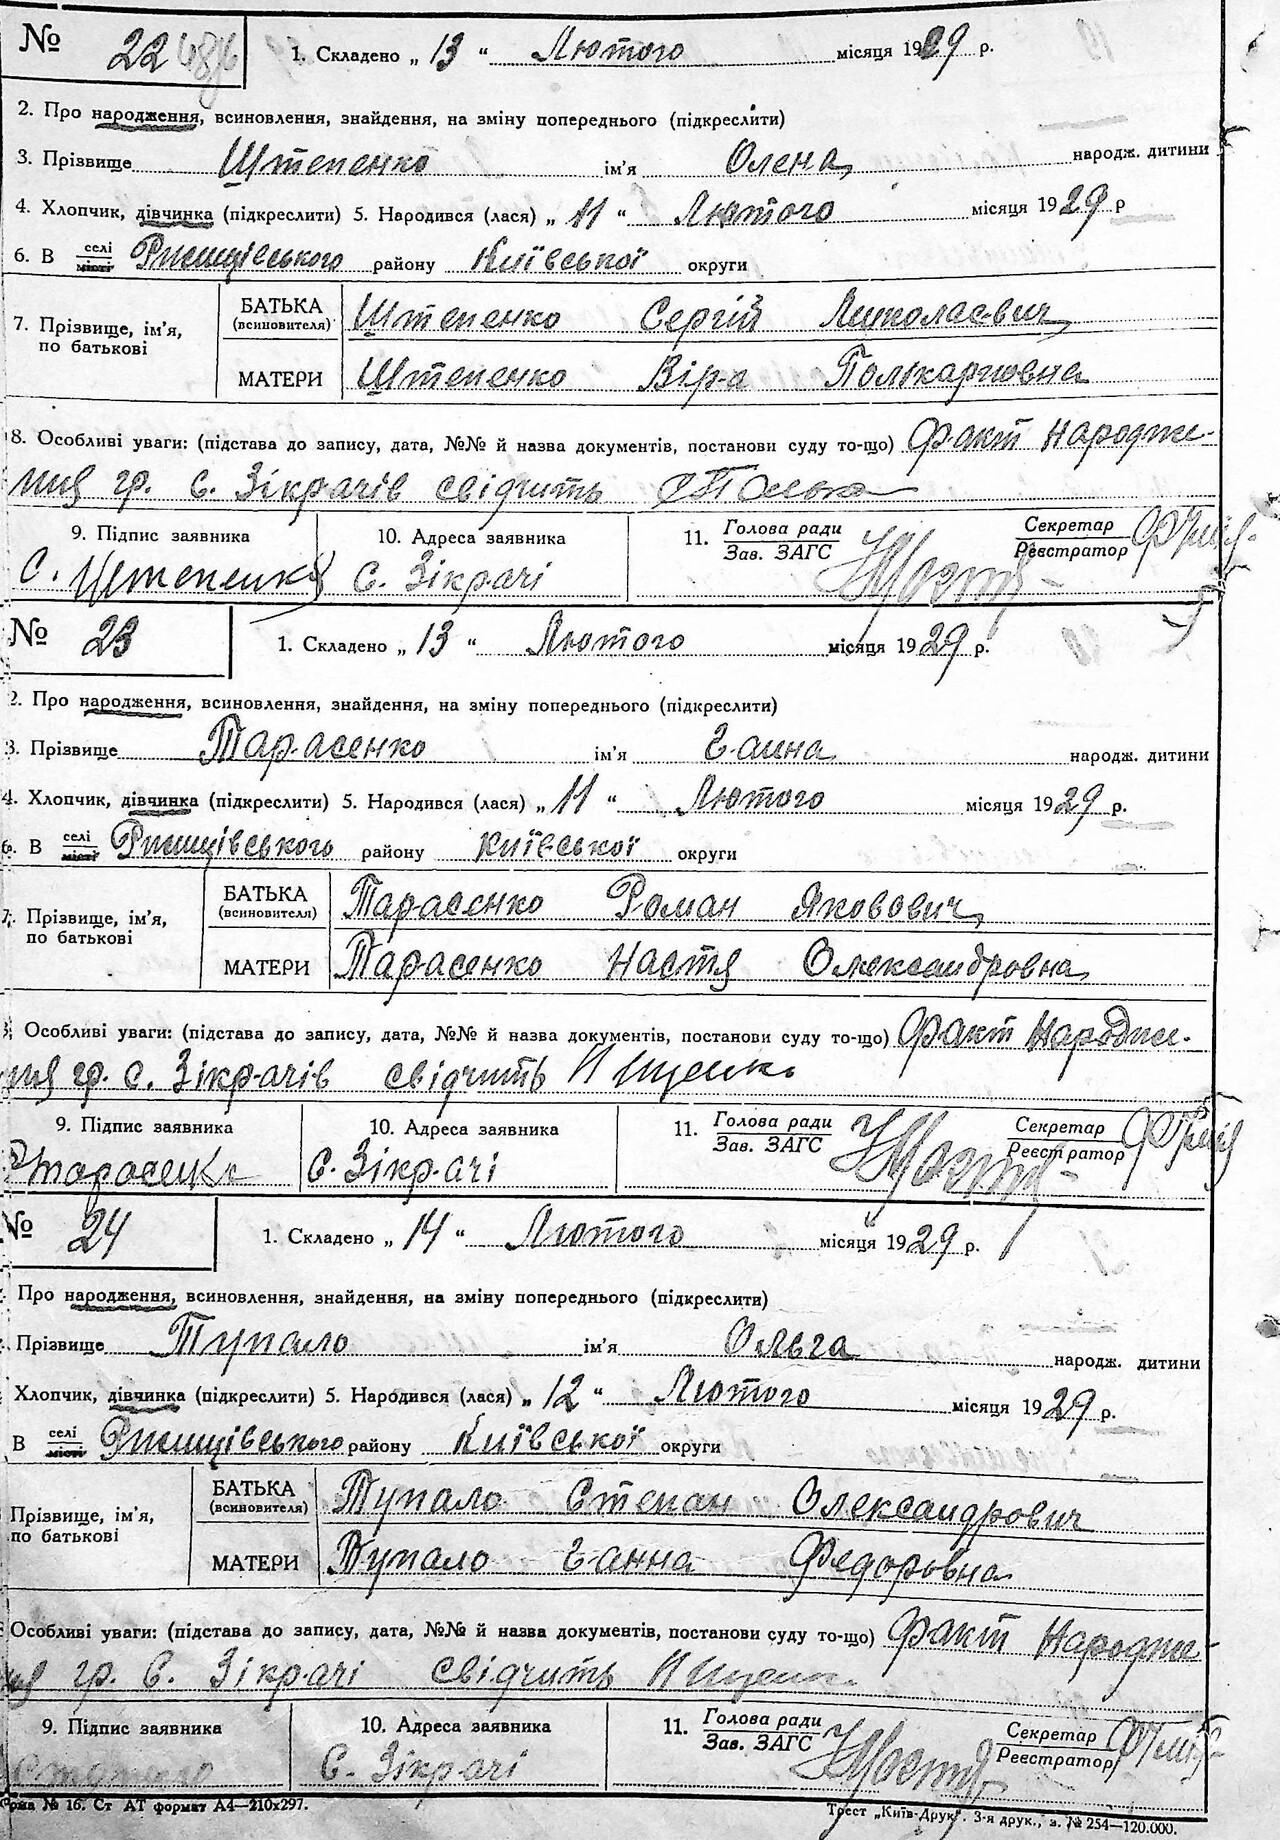 № 22 1. Складено „ 13 “ Лютого місяця 1929 р.
2. Про народження, всиновлення, знайдення, на зміну попереднього (підкреслити)
3. Прізвище Штепенко ім'я Олена народж. дитини
4. Хлопчик, дівчинка (підкреслити) 5. Народився (лася) „ 11 “ Лютого місяця 1929 р
6. В селі місті Ржищівського району Київської округи
7. Прізвище, ім'я, по батькові
БАТЬКА (всиновителя) Штепенко Сергій Миколаєвич
МАТЕРИ Штепенко Вір-а Полікарповна
8. Особливі уваги: (підстава до запису, дата, №№ й назва документів, постанови суду то-що) Факт Народже-
ния гр. с. Зікрачів свідчить
9. Підпис заявника 10. Адреса заявника 11. Голова ради Зав. ЗАГС Секретар Реєстратор
С. Штепенко с. Зікрачі
№ 23 1. Складено „ 13 “ Лютого місяця 1929 р.
2. Про народження, всиновлення, знайдення, на зміну попереднього (підкреслити)
3. Прізвище Тарасенко ім'я Ганна народж. дитини
4. Хлопчик, дівчинка (підкреслити) 5. Народився (лася) „ 11 “ Лютого місяця 1929 р.
6. В селі місті Ржищівського району Київської округи
7. Прізвище, ім'я, по батькові
БАТЬКА (всиновителя) Тарасенко Роман Яковович
МАТЕРИ Тарасенко Настя Олександровна
Особливі уваги: (підстава до запису, дата, №№ й назва документів, постанови суду то-що) Факт Народже-
ния гр. с. Зікрачів свідчить
9. Підпис заявника 10. Адреса заявника 11. Голова ради Зав. ЗАГС Секретар Реєстратор
Р Тарасенко с. Зікрачі
№ 24 1. Складено „ 14 “ Лютого місяця 1929 р.
Про народження, всиновлення, знайдення, на зміну попереднього (підкреслити)
Прізвище Тупало ім'я Ольга народж. дитини
Хлопчик, дівчинка (підкреслити) 5. Народився (лася) „ 12 “ Лютого місяця 1929 р.
В селі місті Ржищівського району Київської округи
Прізвище, ім'я, по батькові
БАТЬКА (всиновителя) Тупало Степан Олександрович
МАТЕРИ Тупало Ганна Федоровна
Особливі уваги: (підстава до запису, дата, №№ й назва документів, постанови суду то-що) Факт Народже-
ия гр. с. Зікрачі свідчить
9. Підпис заявника 10. Адреса заявника 11. Голова ради Зав. ЗАГС Секретар Реєстратор
с. Зікрачі
Форма № 16. Ст АТ формат А4—210х297. Трест „Київ-Друк“. 3-я друк., з. № 254—120.000.